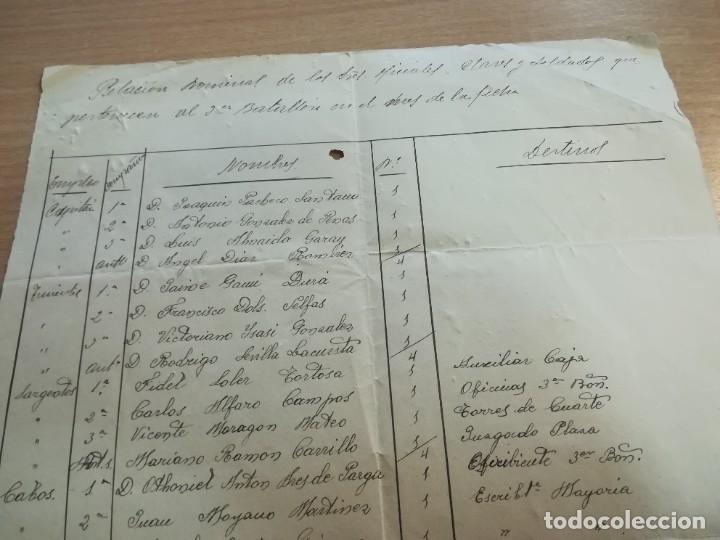 Relación Nominal de los Sres Oficiales, Clases y Soldados que
pertenecen al 3er Batallón en el mes de la fecha
Empleo Compañía Nombres Nº Destinos
Capitán 1ª D. Joaquin Pacheco Santana 1
" 2ª D. Antonio Gonzalez de Penas 1
" 3ª D. Luis Almaida Garay 1
" D. Angel Diaz Ramirez 1
4
Tenientes 1ª D. Jaime Gami Durá 1
" 2ª D. Francisco Dols. Selfas 1
" 3ª D. Victoriano Ysasi Gonzalez 1
" D. Rodrigo Sevilla Lacuesta 1
4
Sargentos 1ª Fidel Soler Tortosa 1 Auxiliar Caja
" 2ª Carlos Alfaro Campos 1 Oficinas 3er Bon.
" 3ª Vicente Moragon Mateo 1 Torres de Cuarte
" Mariano Ramon Carrillo 1 Juzgado Plaza
4
Cabos. 1ª D. Othoniel Anton Ures de Parga 1 3er Bon.
" 2ª Juan Moyano Martinez 1 Escribte. Mayoria
" "
todocoleccion.net